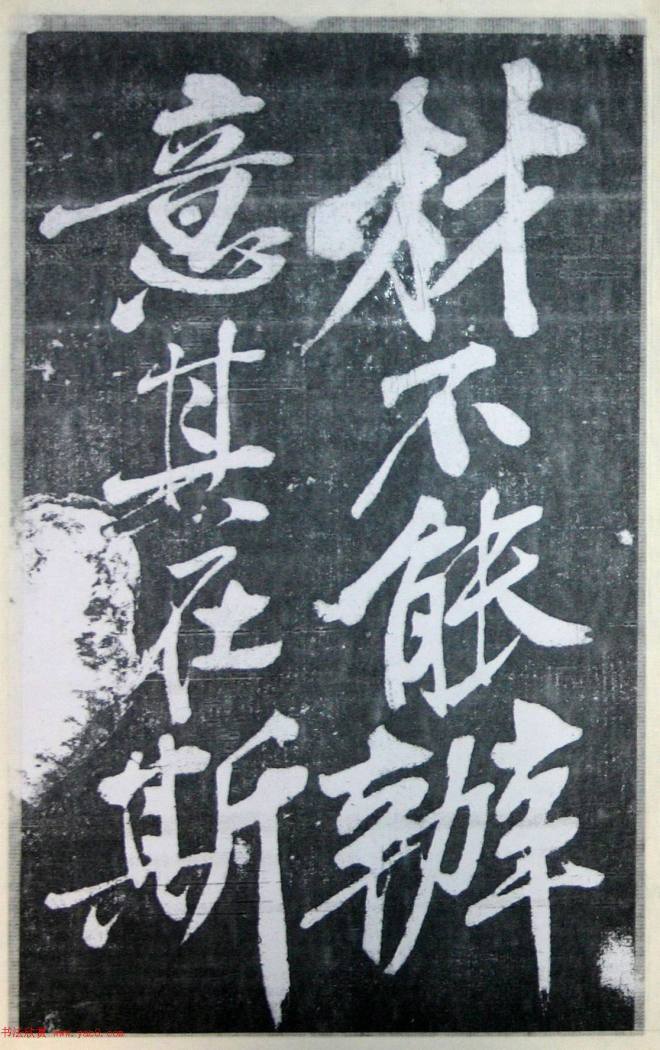 材不能辦
意其在斯
书法欣赏 www.yac8.com